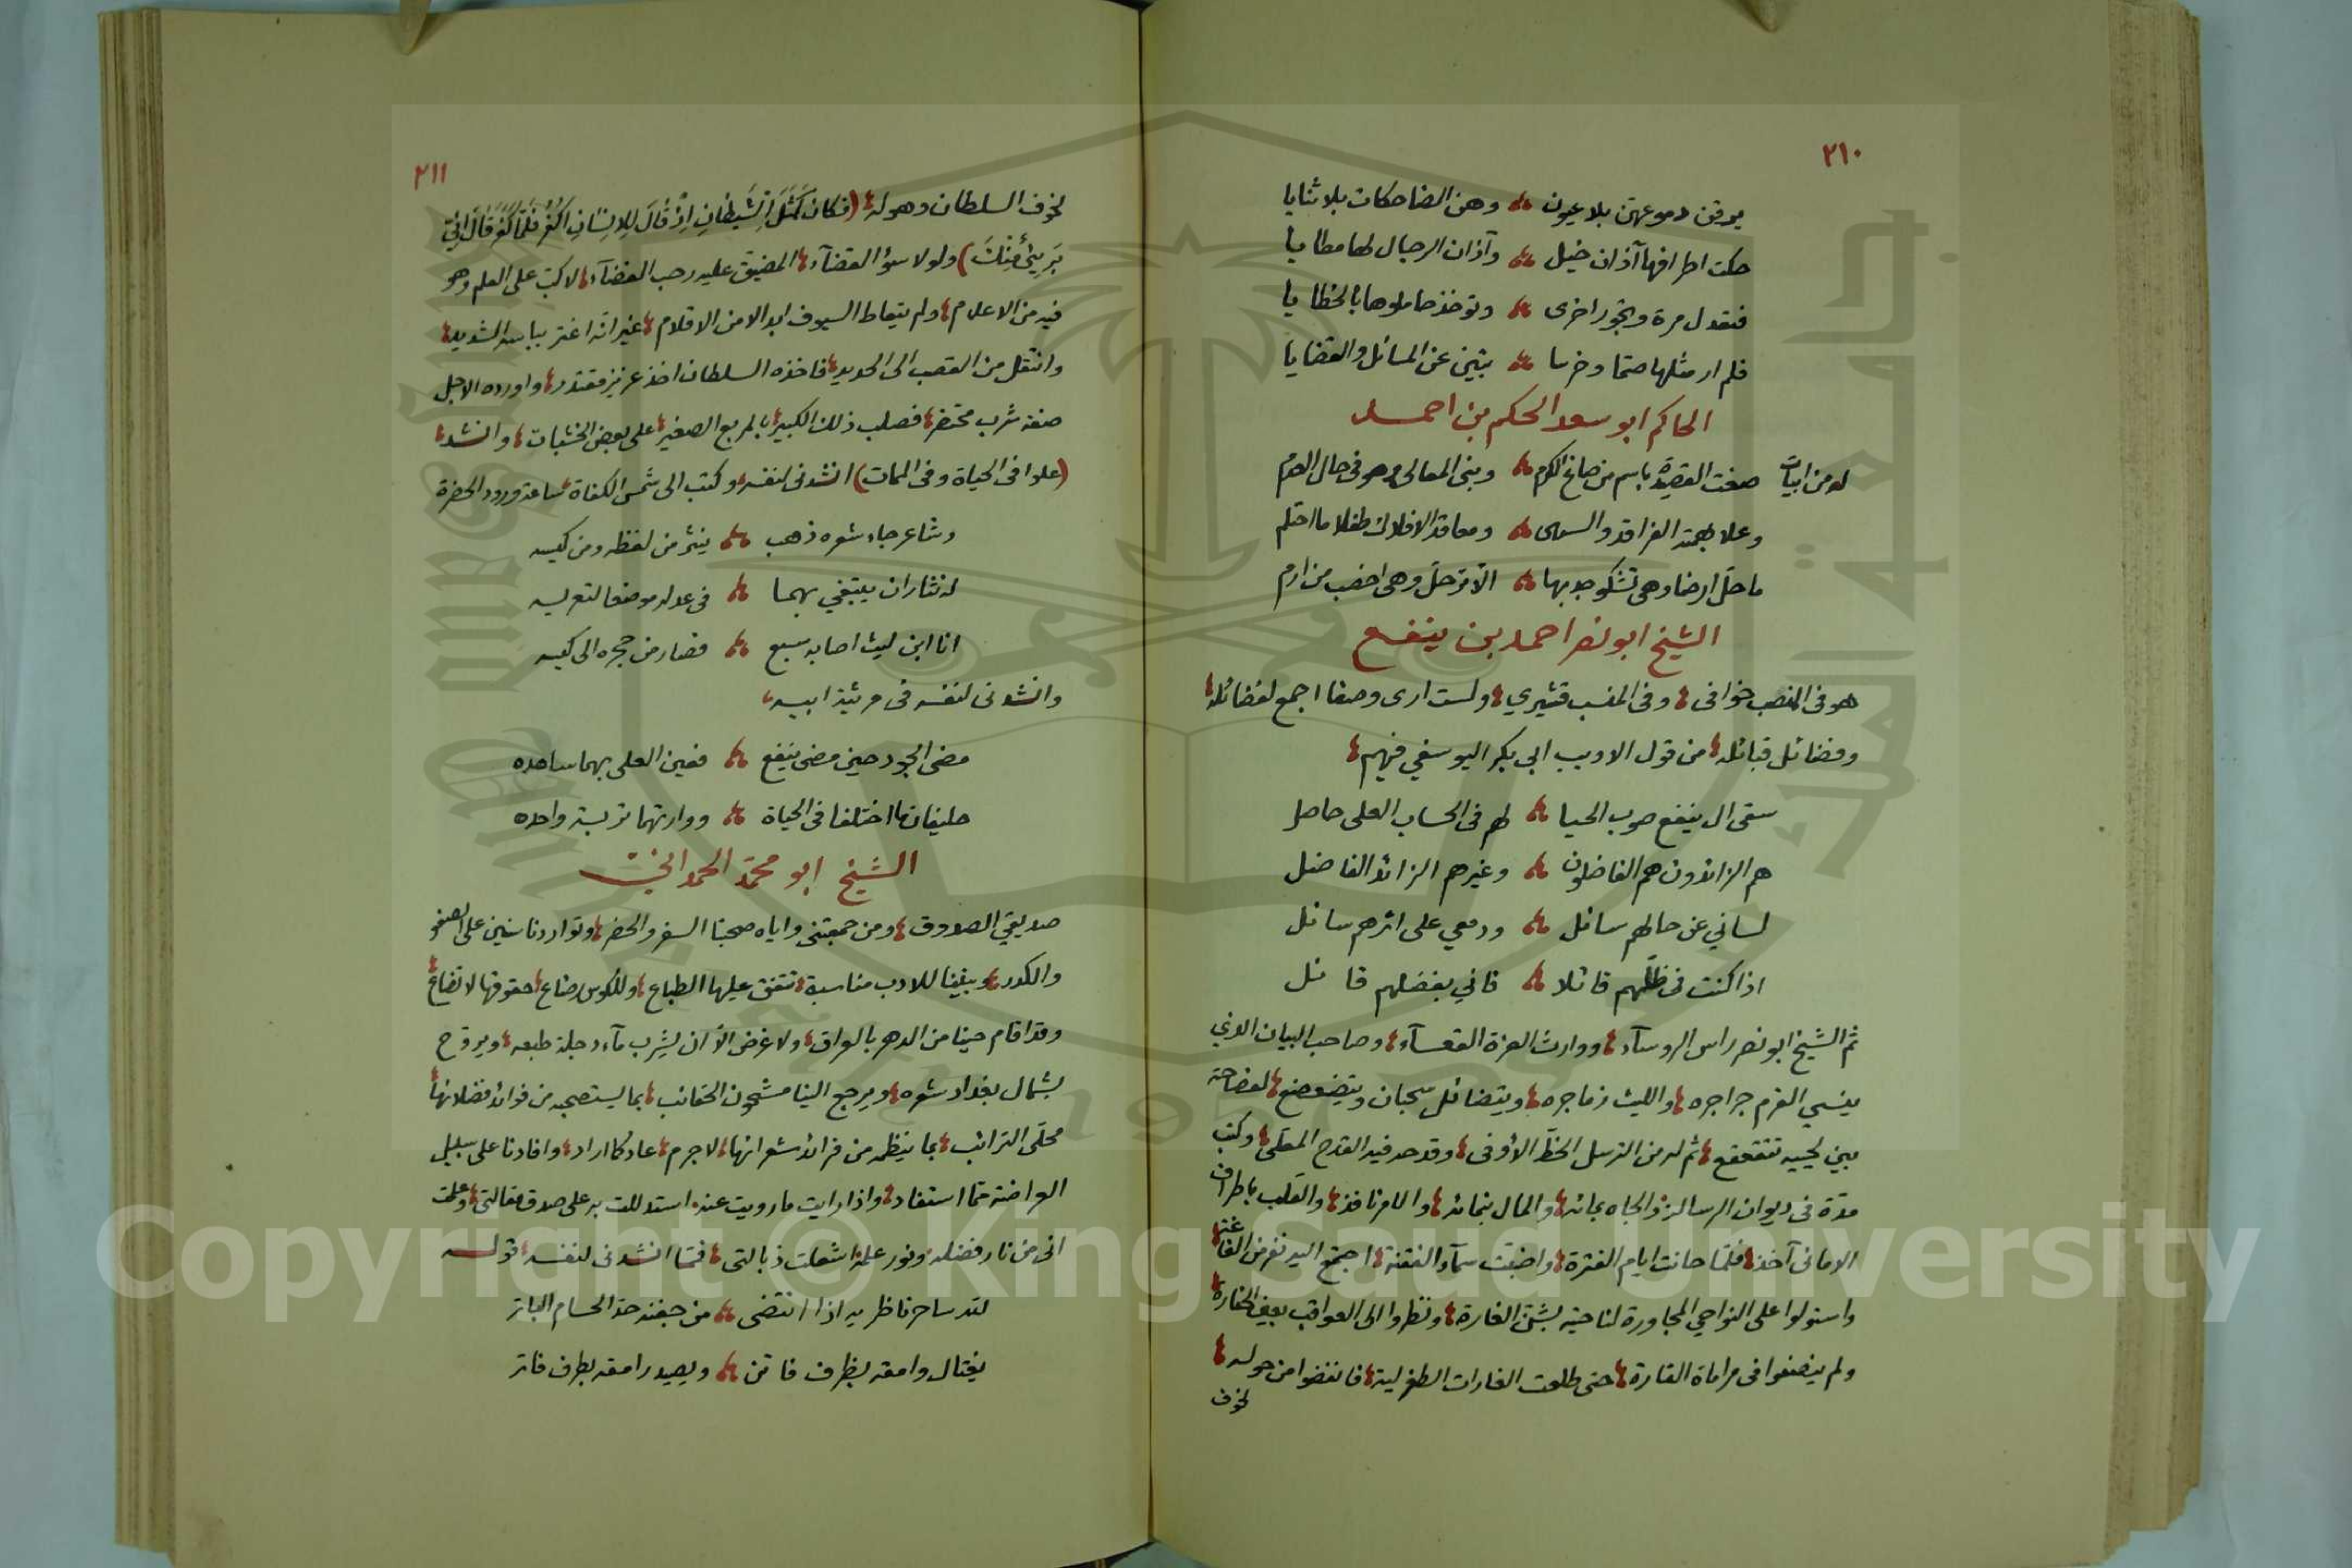 ٢١٠
يرقن دموعهن بلا عيون وهن الضاحكات بلا ثنايا
حكت اطرافها آذان خيل وآذان الرجال لها مطايا
فتعدل مرة وتجور اخرى وتوخذ حاملوها بالخطايا
فلم ار مثلها صما وخرسا تبين عن المسائل والقضايا
الحاكم ابو سعد الحكم بن احمد
له من ابيات صغت القصيدة باسم من صاغ الكرم وبنى المعالي وهو في حال العدم
وعلا بهمته الفراقد والسهى ومعاقد الافلاك طفلا ما احتلم
ما حل ارضا وهى تشكو جدبها الا ترحل وهى اخصب من ارم
الشيخ ابو نصر احمد بن ينفع
هو فى المنصب خوافى وفى النسب قشيري ولست ارى وصفا اجمع لفضائله
وفضائل قبائله من قول الاديب ابى بكر اليوسفي فيهم
سقى ال ينفع صوب الحيا لهم فى الحساب العلى حاصل
هم الزائدون هم الفاضلون وغيرهم الزائد الفاضل
لساني عن حالهم سائل ودمعي على اثرهم سائل
اذا كنت فى ظلهم قائلا فاني بفضلهم قائل
ثم الشيخ ابو نصر راس الروسآء ووارث العزة القعسآء وصاحب البيان الذي
ينسي القرم جراجره والليث زماجره ويتضائل سحبان ويتضعضع لفصاحة
بين لحييه تتقعقع ثم له من الترسل الحظ الأوفى وقد حد فيه القدح المعلى وكتب
مدة فى ديوان الرسالة ذو الجاه بجائه والمال بنمائه والامر نافذ والقلب باطراف
الامانى آخذ فلما حانت ايام الفترة واضبت سمآء الفتنة اجتمع اليه نفر من الغاغة
واستولوا على النواحي المجاورة لناحيته بشن الغارة ونظروا الى العواقب بعين الحقارة
ولم ينصفوا فى مراماة القارة حتى طلعت الغارات الطغرلية فانفضوا من حوله
لخوف
٢١١
لخوف السلطان وهوله (فكان كَمَثَلِ الشَيطانِ اِذْ قَالَ لِلاِنسَانِ اكْفُرْ فَلَمَّا كَفَرَ قَالَ اِنِّي
بَرِيئٌ مِنْكَ) ولولا سوء القضآء المضيق عليه رحب الفضآء لاكب على العلم وهو
فيه من الاعلام ولم يتعاط السيوف ابدالا من الاقلام غير انه اغتر بباسه الشديد
وانتقل من القصب الى الحديد فاخذه السلطان اخذ عزيز مقتدر واورده الاجل
صفة شرب محتضر فصلب ذلك الكبير بالمربع الصغير على بعض الخشبات وانشد
(علوا فى الحياة وفى الممات) انشدنى لنفسه وكتب الى شمس الكفاة ساعة ورود الحضرة
وشاعر جاء شعره ذهب ينثر من لفظه ومن كيسه
له نثاران يبتغي بهما فى عدله موضعا لتعريسه
انا ابن ليث اصابه سبع فصار من حجره الى كيسه
وانشدنى لنفسه فى مرثية ابيه
مضى الجود حين مضى ينفع فعين العلى بهما ساهده
حليفان ما اختلفا فى الحياة ووارتهما تربة واحده
الشيخ ابو محمد الحمدانى
صديقي الصدوق ومن جمعتنى واياه صحبتا السفر والحضر وتواردنا سنين على الصفو
والكدر وبيننا للادب مناسبة تتفق عليها الطباع وللكوس رضاع حقوقها لا تضاع
وقد اقام حينا من الدهر بالعراق ولا غرض الا ان يشرب مآء دجلة طبعه ويروح
بشمال بغداد شعره ويرجع الينا مشحون الحقائب بما يستصحبه من فوائد فضلائها
محلى الترائب بما ينظمه من فرائد شعرائها لا جرم عاد كما اراد وافادنا على سبيل
العراضة مما استفاد واذا رايت ما رويت عنه استدللت به على صدق مقالتى وعلمت
انى من نار فضله ونور علمه اشعلت ذبالتى فمما انشدنى لنفسه قوله
لله ساحر ناظريه اذا انتضى من جفنه حد الحسام الباتر
يغتال وامقه بظرف فاتن ويصيد رامقه بطرف فاتر